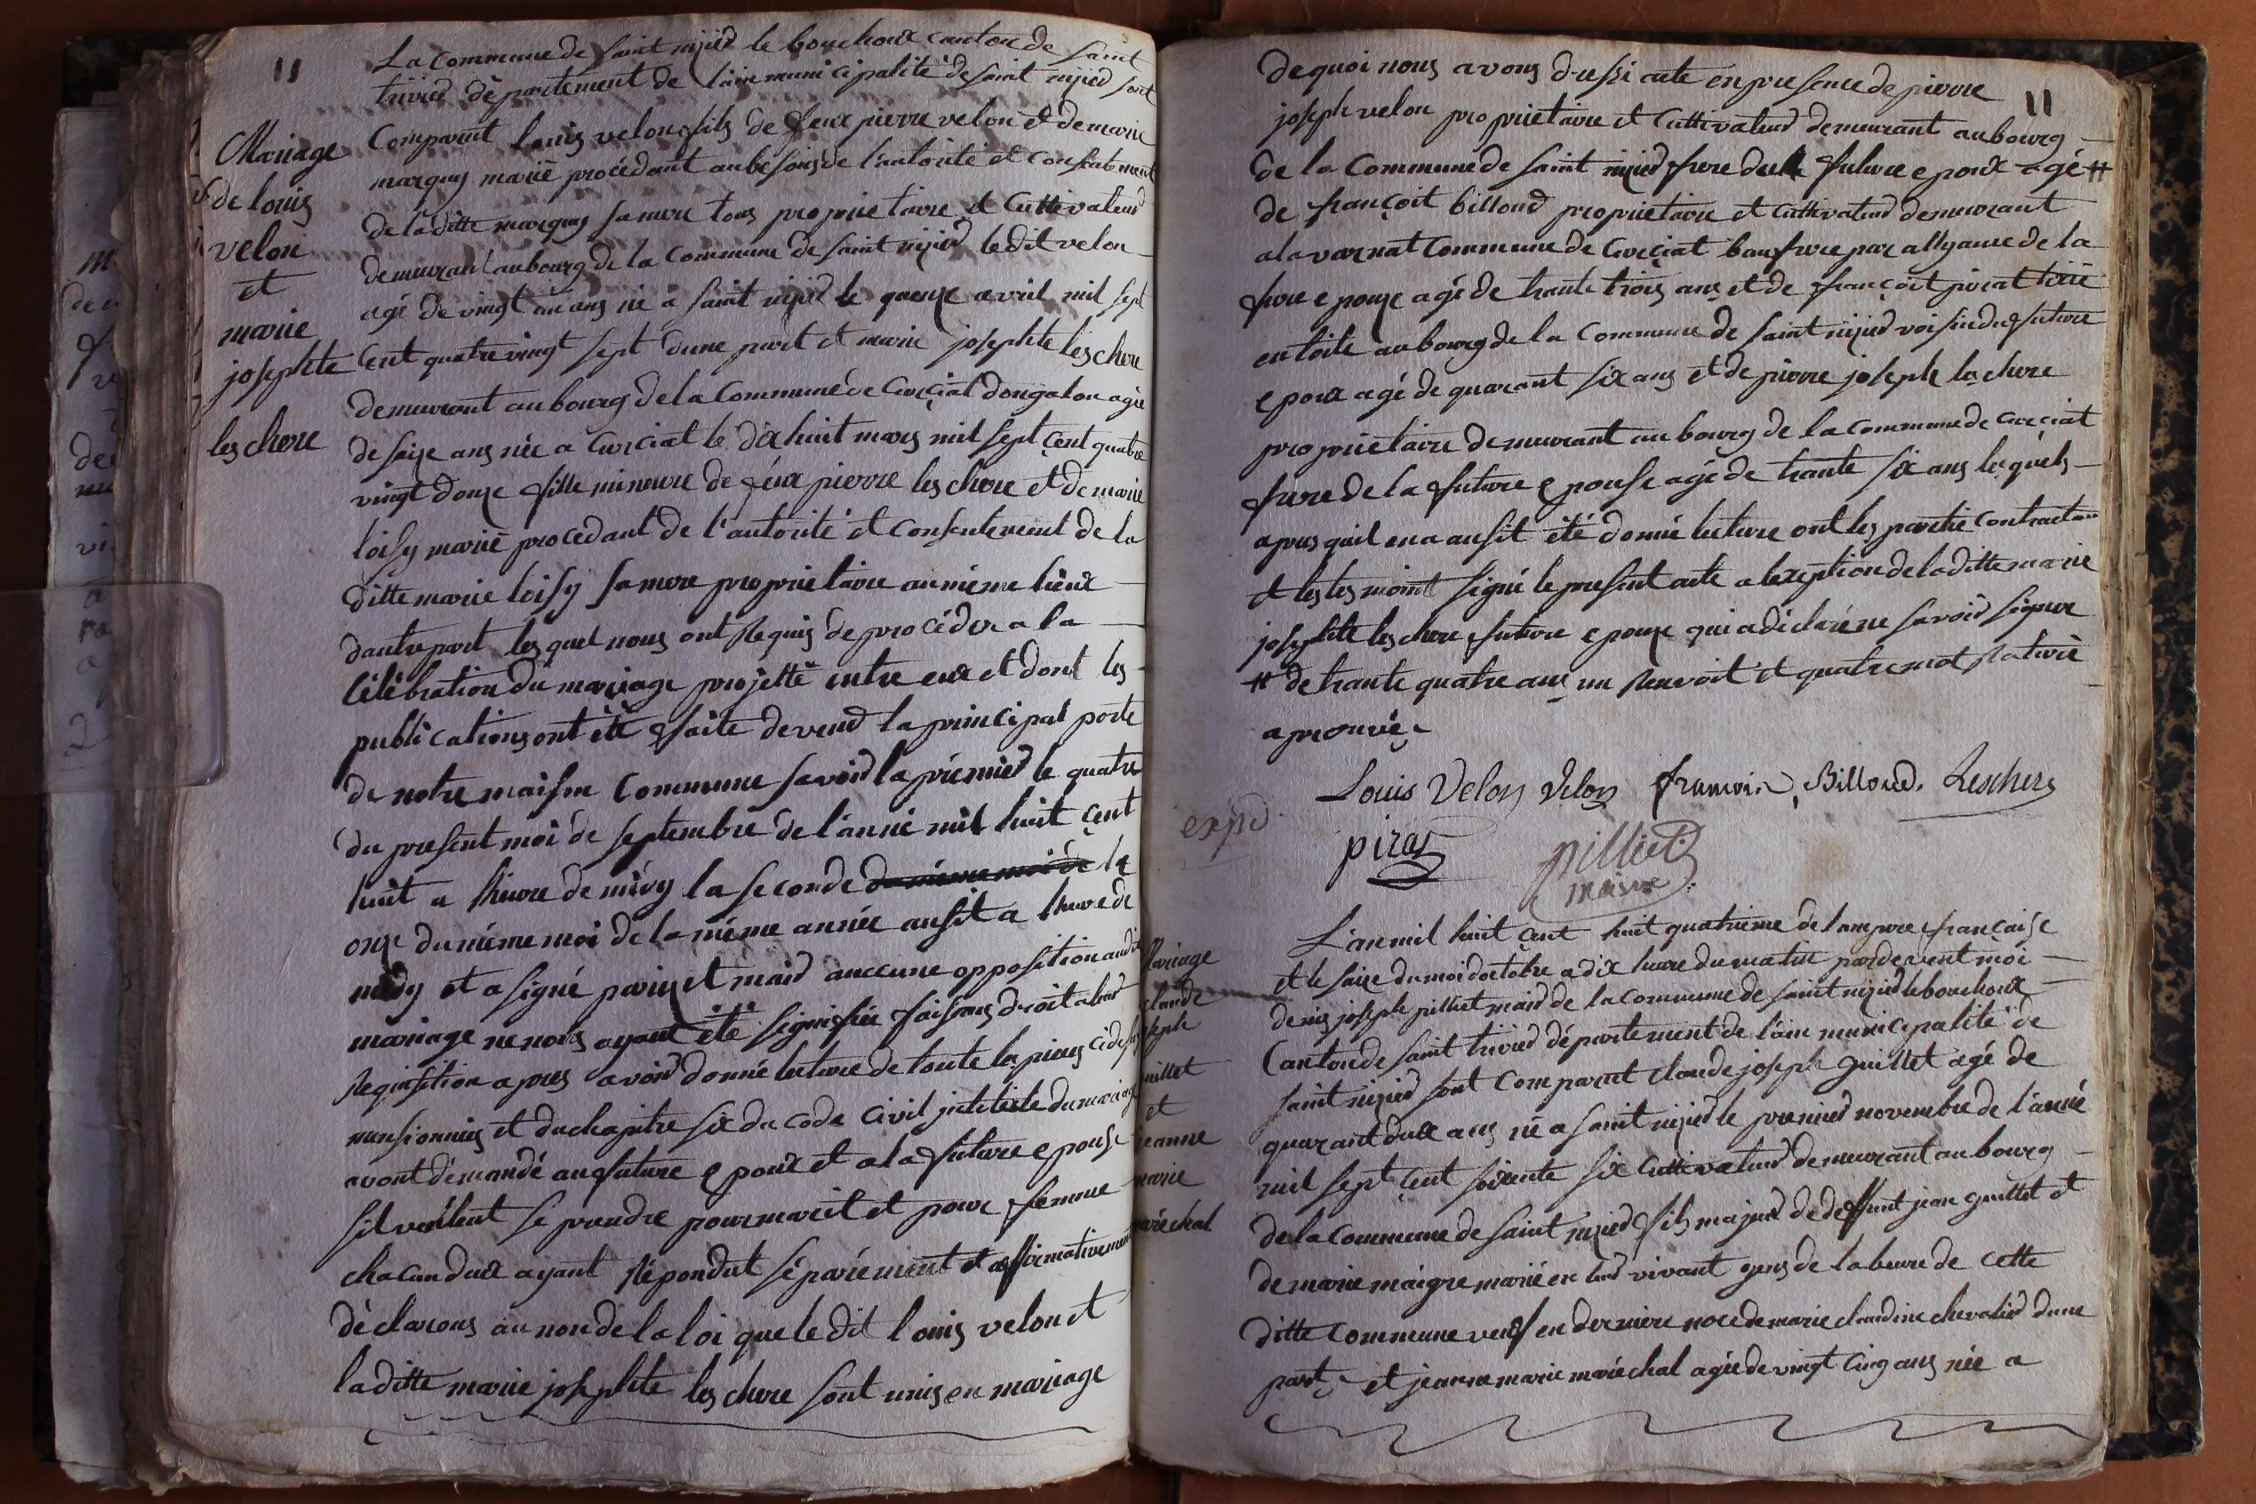 11
La commune de saint nizied le bouchoux canton de saint
trivied département de l'ain municipalité de saint nizied sont
Mariage
de louis
velon
et
marie
josephte
les chere
Comparut louis velon fils de feux pierre velon et de marie
marguy marié procédant au besoins de l'autorité et consentement
de la ditte marguy sa mere tous proprietaire et Cuttivateud
demeurant au bourg de la commune de saint nizied le dit velon
agé de vingt un ans né a saint nizied le quenze avril mil sept
Cent quatre vingt sept dune part et marie josephte les chere
demeurant au bourg de la Commune de Curciat dongalon agée
de saize ans née a Curciat le dix huit mars mil sept çent quatre
vingt douze fille mineure de feux pierre les chere et de marie
loisy marié procedant de l'autorité et consentement de la
ditte marie loisy sa mere proprietaire au même lieux
dautre part les quel nous ont Requis de procéder a la
Célébration du mariage projetté entre eux et dont les
publications ont été faite devend la principal porte
de notre maison Commune savoir la prémied le quatre
du present moi de septembre de l'année mil huit çent
huit a lheure de midy la seconde du même moi de le
onze du même moi de la même année ausit a lheure de
midy et a signé pariget maid auccune opposition audit
mariage ne nous ayant été signifiée faisant droit a leur
Requisition apres avoir donné lecture de toute les pieces cidessus
mensionnées et du chapitre six du code Civil intitulé du mariage
avont démandé au future epoux et a la future epouse
sil veulent se prendre pour marit et pour femme
chacun deux ayant Répondut séparément et affirmativement
déclarons au non de la loi que le dit louis velon et
la ditte marie josephte les chere sont unis en mariage
11
de quoi nous avons dressi acte en presence de pierre
joseph velon proprietaire et Cuttivateud demeurant au bourg
de la Commune de saint nizied frere du future epoux agé #
de françoit billoud proprietaire et Cuttivateud demeurant
a la varnat Commune de Curciat baufrere par allyance de la
future epouze agé de trante trois ans et de françoit pirat
en toile au bourg de la Commune de saint nizied voisin du future
epoux agé de quarant six ans et de pierre joseph les chere
proprietaire demeurant au bourg de la commune de curciat
frere de la future epouse agé de trante six ans lesquels
apres quil en a ausit été donné lecture ont les partie contractans
et les tesmoint signé le present acte a lexeption de la ditte marie
josephte les chere future epouze qui a déclaré ne savoir signer
# de trante quatre ans un Renvoit et quatre mot Raturé
aprouvé
Louis Velon Velon francois Billoud. Leschere
expd
piras
pillied
maire
Mariage
claude
joseph
guillet
et
jeanne
marie
maréchal
L'an mil huit çent huit quatrieme de lempire française
et le saize du moi doctobre a dix heure du matin pardevent moi
denis joseph pilliet maid de la commune de saint nizied le bouchoux
Canton de saint trivied département de l'ain municipalité de
saint nizied sont Comparut claude joseph guillet agé de
quarant deux ans né a saint nizied le premied novembre de l'année
mil sept çent soixente six Cuttivateud demeurant au bourg
de la commune de saint nizied fils majeur de deffunt jean guillet et
de marie maigre marié en leur vivant gens de labeure de cette
ditte Commune veuf en derniere noce de marie claudine chevalied dune
part et jeanne marie maréchal agée de vingt Cinq ans née a